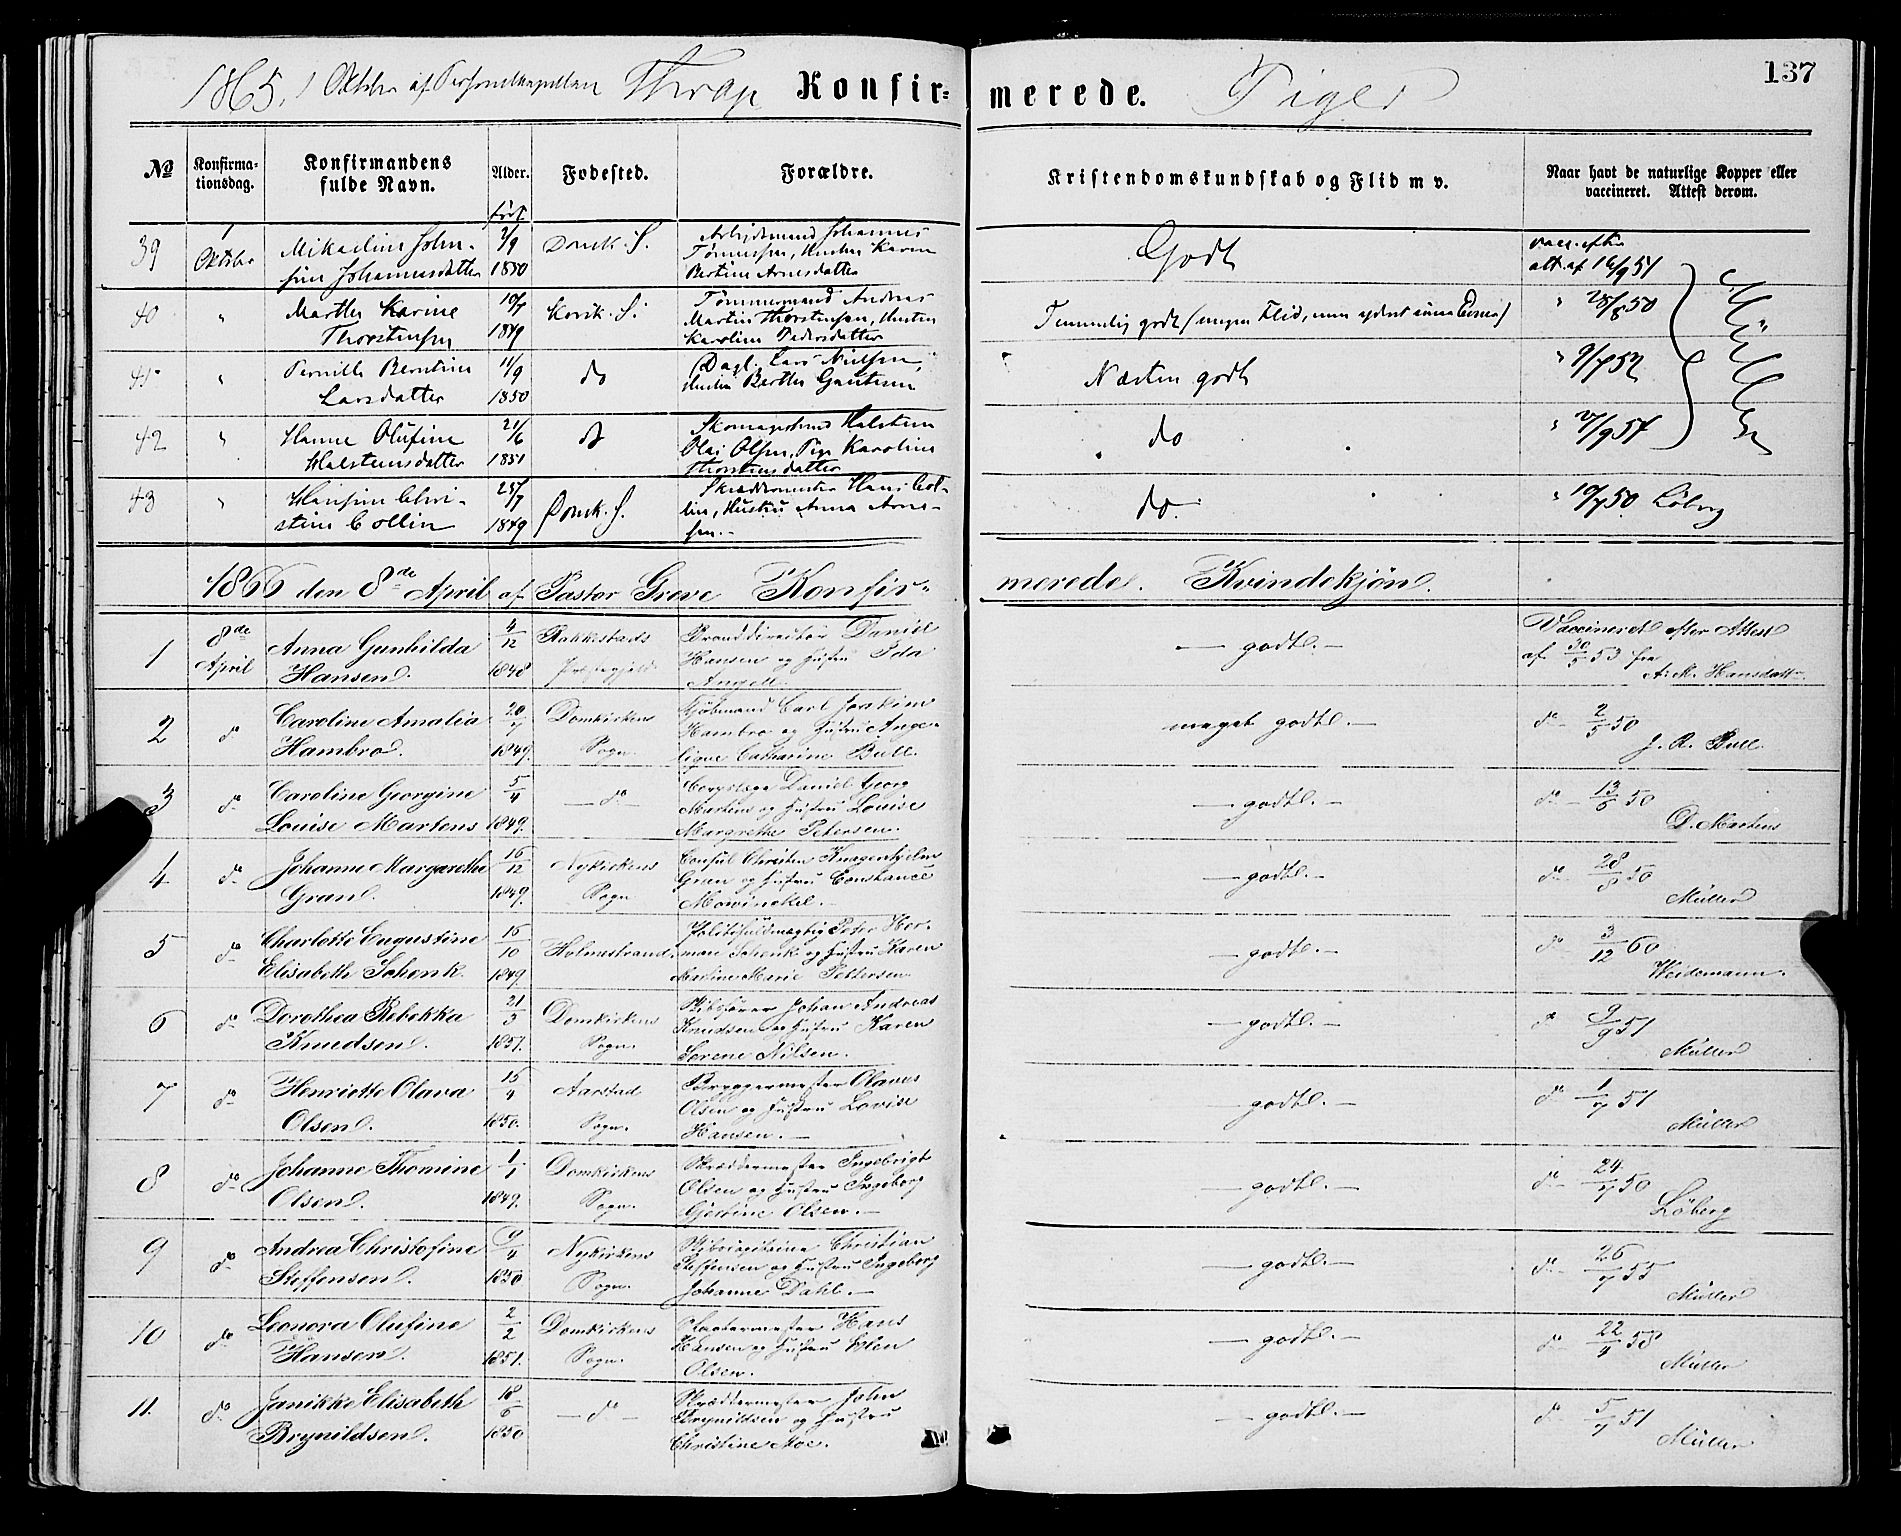 137
1865, 1 Oktober af Personelkapellan Thrap Konfirmerede. Piger
No Konfirmationsdag. Konfirmandens fulde Navn. Alder. Fødested. Forældre. Kristendomskundskab og Flid m v. Naar havt de naturlige Kopper eller vaccineret. Attest derom.
født
39 1 Oktober Mikaeline Johnsine Johannesdatter 2/9 1850 Domk. S. Arbeidsmand Johannes Tønnessen, Hustru Karen Bertine Arnesdatter Godt vacc. efter att. af 16/9 51
40 " Marthe Karine Thorstensen 10/7 1849 Korsk. S. Tømmermand Andreas Martin Thorstensen, Hustru Karoline Pedersdatter Temmelig godt (megen Flid, men yderst ringe Evner) " 28/8 50
41 " Pernille Berntine Larsdatter 11/9 1850 do Dagl. Lars Nielsen, Hustru Berthe Gautesen Næsten godt " 9/7 52
42 " Hanne Olufine Halsteinsdatter 21/6 1851 do Halstein Olai Olsen, Pige Karoline Thorstensdatter do " 27/9 54
Müller
43 " Hansine Christine Collin 25/7 1849 Domk. S. Skræddermester Hans Collin, Hustru Anna Arnesen.- do. " 10/7 50 Löberg
1866 den 8de April af Pastor Greve Konfirmerede. Kvindekjøn.
1 8de April Anna Gunhilda Hansen. 4/12 1848 Rakkestads Præstegjeld Branddirectør Daniel Hansen og Hustru Ida Angell - godt.- Vaccineret efter Attest af 30/5 53 fra A. M. Hansdatter
2 do Caroline Amalia Hambro. 20/7 1849. Domkirkens Sogn. Kjöbmand Carl Joakim Hambro og Hustru Angelique Catharine Bull. meget godt.- do 2/5 50 J. R. Bull.
3 do Caroline Georgine Louise Martens 5/4 1849. - do - Daniel Georg Martens og Hustru Louise Margrethe Petersen. - godt.- do - 13/6 50 D. Martens
4 do Johanne Margarethe Gran. 16/12 1849. Nykirkens Sogn Consul Christen Knagenhjelm Gran og Hustru Constance Mowinckel.- - godt.- do - 28/8 50 Müller
5 do Charlotte Eugustine Elisabeth Schenk. 15/10 1849. Holmestrand. Politifuldmægtig Peter Herman Schenk og Hustru Karen Martine Marie Pettersen - godt.- do - 3/12 60 Weidemann.
6 do Dorothea Rebekka Knudsen. 21/3 1851. Domkirkens Sogn. Skibsfører Johan Andreas Knudsen og Hustru Karen Serene Nilsen. - godt.- do 9/9 51 Müller
7 do Henriette Olava Olsen. 15/4 1850. Aarstad Sogn. Olaus Olsen og Hustru Lovise Hansen.- - godt.- do - 1/7 51 Müller
8 do Johanne Thomine Olsen. 1/1 1849. Domkirkens Sogn. Skræddermester Ingebrigt Olsen og Hustru Ingeborg Gjertine Olsen.- - godt.- do - 24/7 50 Löberg
9 do Andrea Christofine Steffensen. 9/4 1850 Nykirkens Sogn. Christian Steffensen og Hustru Ingeborg Johanne Dahl.- - godt.- do - 26/7 55 Müller
10 do Leonora Olufine Hansen. 2/2 1851. Domkirkens Sogn. Hans Hansen og Hustru Elen Olsen. - godt.- do 22/4 58 Müller
11. do Janikke Elisabeth Brynildsen. 18/6 1850 - do - Skræddermester John Brynildsen og Hustru Christine Moe. - godt.- do 5/7 51 Müller